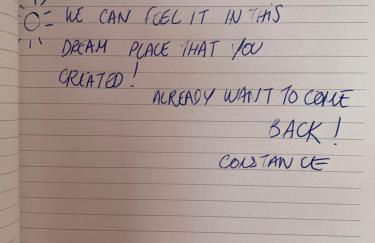 WE CAN FEEL IT IN THIS
DREAM PLACE THAT YOU
CREATED!
ALREADY WANT TO COME
BACK!
CONSTANCE